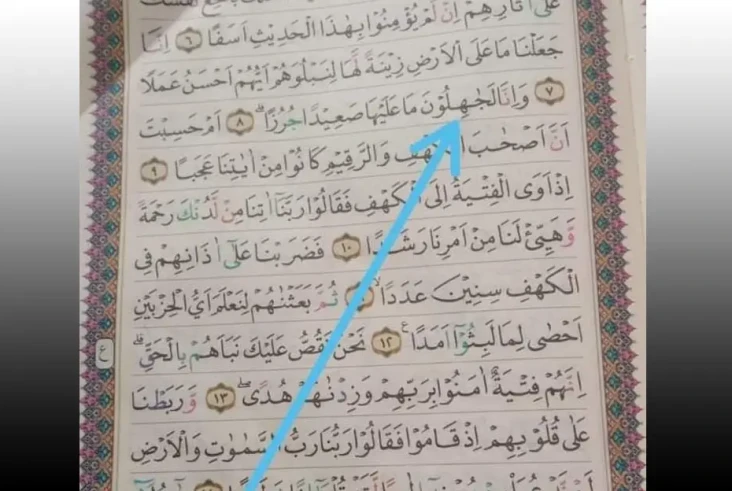 عَلٰٓى اٰثَارِهِمْ اِنْ لَّمْ يُؤْمِنُوْا بِهٰذَا الْحَدِيْثِ اَسَفًا ٦ اِنَّا
جَعَلْنَا مَا عَلَى الْاَرْضِ زِيْنَةً لَّهَا لِنَبْلُوَهُمْ اَيُّهُمْ اَحْسَنُ عَمَلًا
٧ وَاِنَّا لَجٰهِلُوْنَ مَا عَلَيْهَا صَعِيْدًا جُرُزًاۗ ٨ اَمْ حَسِبْتَ
اَنَّ اَصْحٰبَ الْكَهْفِ وَالرَّقِيْمِ كَانُوْا مِنْ اٰيٰتِنَا عَجَبًا ٩
اِذْ اَوَى الْفِتْيَةُ اِلَى الْكَهْفِ فَقَالُوْا رَبَّنَآ اٰتِنَا مِنْ لَّدُنْكَ رَحْمَةً
وَّهَيِّئْ لَنَا مِنْ اَمْرِنَا رَشَدًا ١٠ فَضَرَبْنَا عَلٰٓى اٰذَانِهِمْ فِى
الْكَهْفِ سِنِيْنَ عَدَدًاۙ ثُمَّ بَعَثْنٰهُمْ لِنَعْلَمَ اَيُّ الْحِزْبَيْنِ
اَحْصٰى لِمَا لَبِثُوْٓا اَمَدًا ࣖ ١٢ نَحْنُ نَقُصُّ عَلَيْكَ نَبَاَهُمْ بِالْحَقِّۗ
ع
اِنَّهُمْ فِتْيَةٌ اٰمَنُوْا بِرَبِّهِمْ وَزِدْنٰهُمْ هُدًىۖ ١٣ وَّرَبَطْنَا
عَلٰى قُلُوْبِهِمْ اِذْ قَامُوْا فَقَالُوْا رَبُّنَا رَبُّ السَّمٰوٰتِ وَالْاَرْضِ